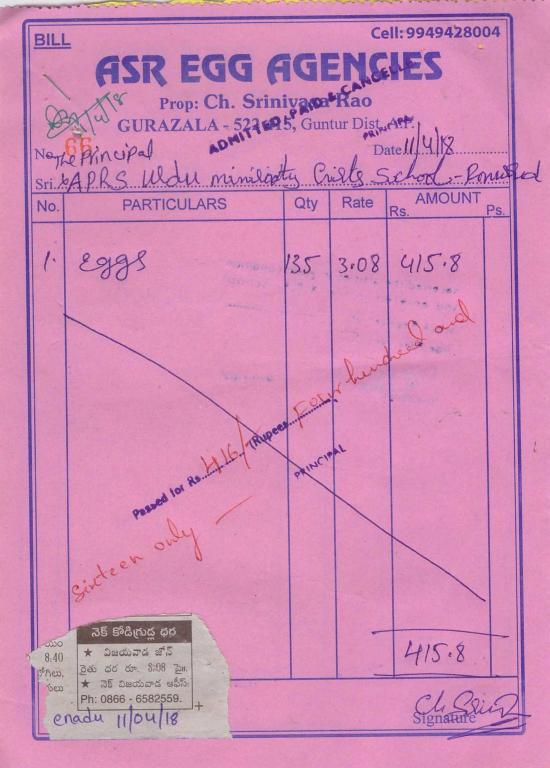 BILL
Cell: 9949428004
ASR EGG AGENCIES
Prop: Ch. Srinivasa Rao
GURAZALA - 522 415, Guntur Dist, A.P.
ADMITTED, PAID & CANCELLED
PRINCIPAL
11/4/18
No. 66
The Principal
Date 11/4/18
Sri. APRS Urdu minority Girls School
No. PARTICULARS Qty Rate AMOUNT
Rs. Ps.
1. Eggs 135 3.08 415.8
Passed for Rs. 416/- (Rupees Four hundred and
PRINCIPAL
sixteen only
415.8
Signature
నెక్ కోడిగ్రుడ్ల ధర
★ విజయవాడ జోన్
రైతు ధర రూ. 3:08 పై॥.
★ నెక్ విజయవాడ ఆఫీస్:
Ph: 0866 - 6582559.
8.40
enadu 11/04/18